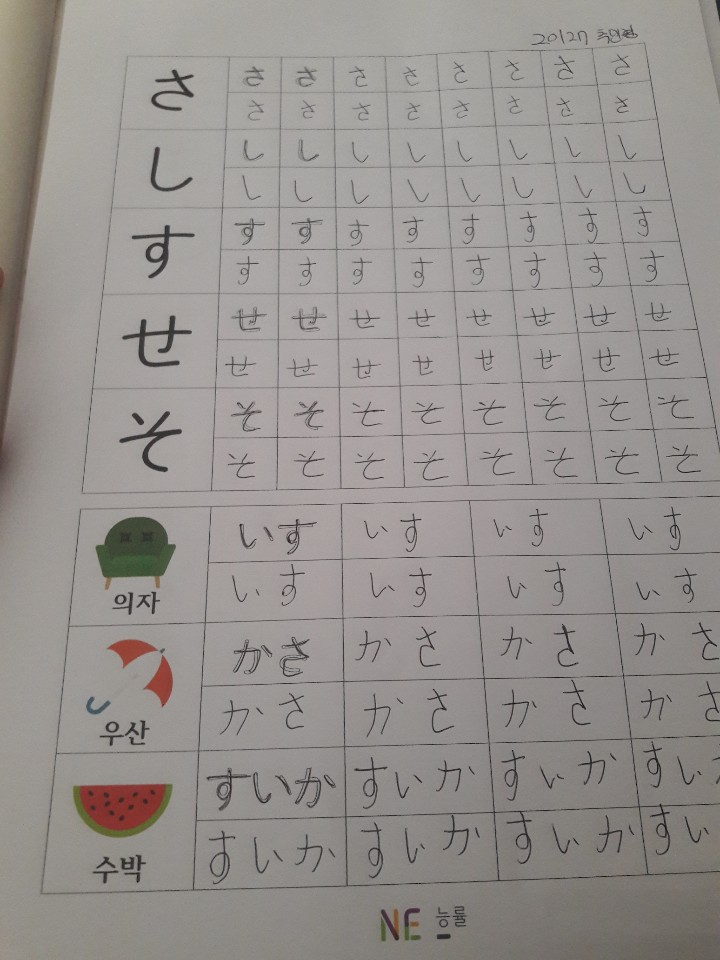 20127
さ さ さ さ さ さ さ さ さ
さ さ さ さ さ さ さ さ
し し し し し し し し し
し し し し し し し し
す す す す す す す す す
す す す す す す す す
せ せ せ せ せ せ せ せ せ
せ せ せ せ せ せ せ せ
そ そ そ そ そ そ そ そ そ
そ そ そ そ そ そ そ そ
いす いす いす いす
의자 いす いす いす いす
かさ かさ かさ かさ
우산 かさ かさ かさ かさ
すいか すいか すいか すい
수박 すいか すいか すいか すい
NE 능률